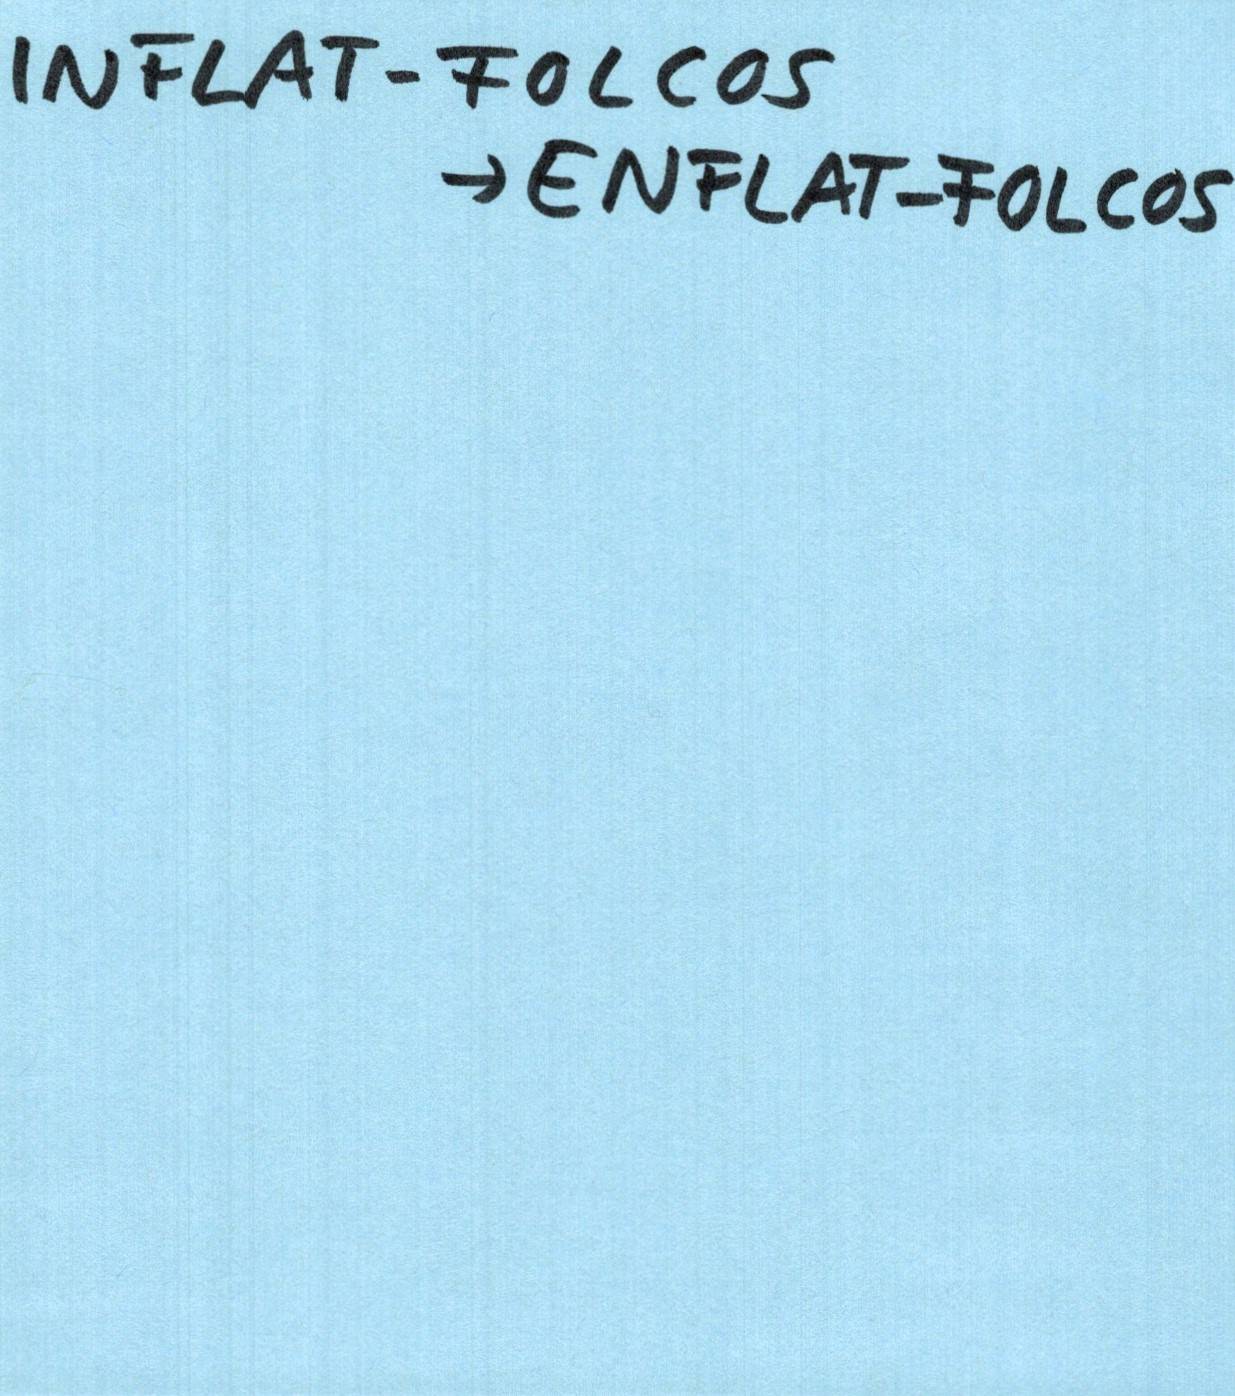 INFLAT-FOLCOS
→ ENFLAT-FOLCOS